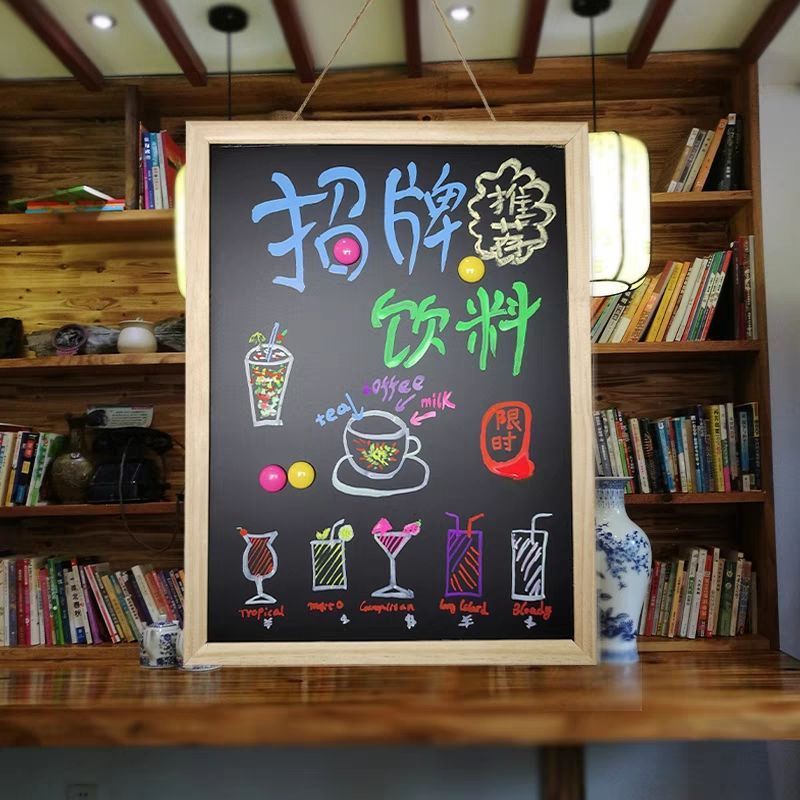 招牌
推荐
饮料
coffee
tea
milk
限时
Tropical
Long Island
Bloody